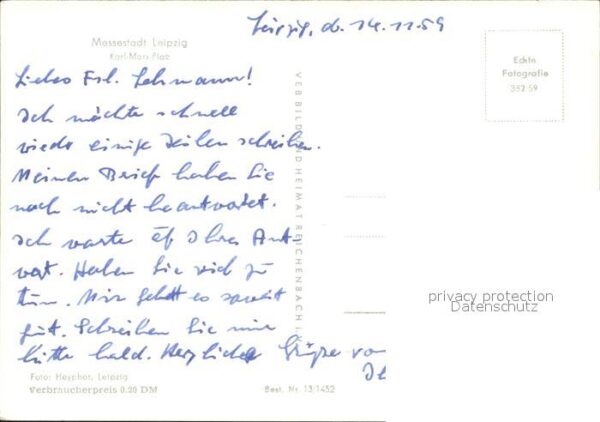 Leipzig, d. 14.11.59
Messestadt Leipzig
Karl-Marx-Platz
Echte
Fotografie
352 59
Liebes Frl. Lehmann!
Ich möchte schnell
wieder einige Zeilen schreiben.
Meinen Brief haben Sie
noch nicht beantwortet.
Ich warte auf Ihre Ant-
wort. Haben Sie viel zu
tun. Mir geht es soweit
gut. Schreiben Sie mir
bitte bald. Herzliche Grüße
VEB BILD UND HEIMAT REICHENBACH I.
privacy protection
Datenschutz
Foto: Heyphot, Leipzig
Verbraucherpreis 0.20 DM
Best. Nr. 13/1452